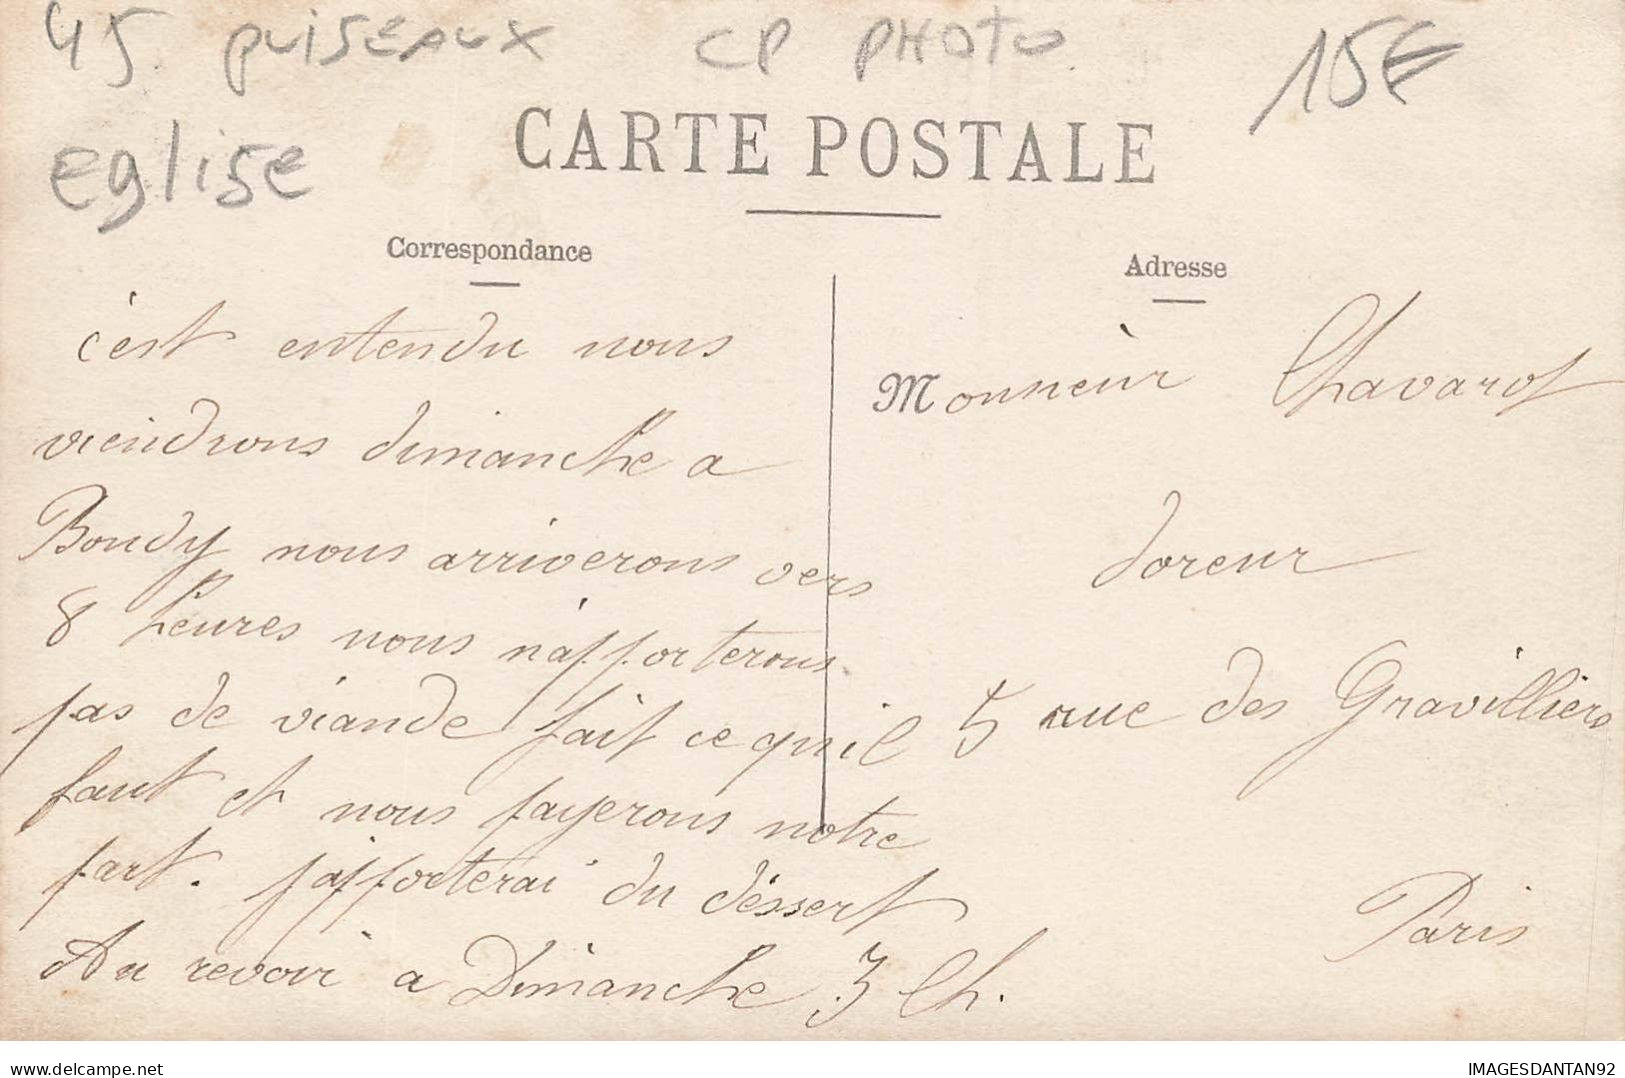 45 PUISEAUX CP PHOTO 15€
Eglise
CARTE POSTALE
Correspondance
Adresse
c'est entendu nous
viendrons dimanche a
Bondy nous arriverons vers
8 heures nous n'apporterons
pas de viande fait ce qu'il
faut et nous payerons notre
part. j'apporterai du déssert
Au revoir a Dimanche 3 Ch.
Monsieur Chavarot
doreur
5 rue des Gravilliers
Paris
IMAGESDANTAN92
delcampe.net